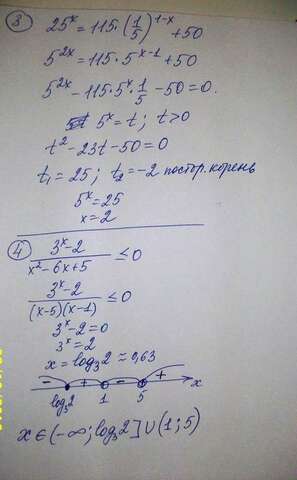 ③ 25^x = 115·(1/5)^(1-x) + 50
5^(2x) = 115·5^(x-1) + 50
5^(2x) - 115·5^x·1/5 - 50 = 0.
5^x = t; t>0
t² - 23t - 50 = 0
t₁ = 25; t₂ = -2 постор. корень
5^x = 25
x = 2
④ (3^x - 2)/(x² - 6x + 5) ≤ 0
(3^x - 2)/((x-5)(x-1)) ≤ 0
3^x - 2 = 0
3^x = 2
x = log₃2 ≈ 0,63
- + - + x
log₃2 1 5
x ∈ (-∞; log₃2] ∪ (1; 5)